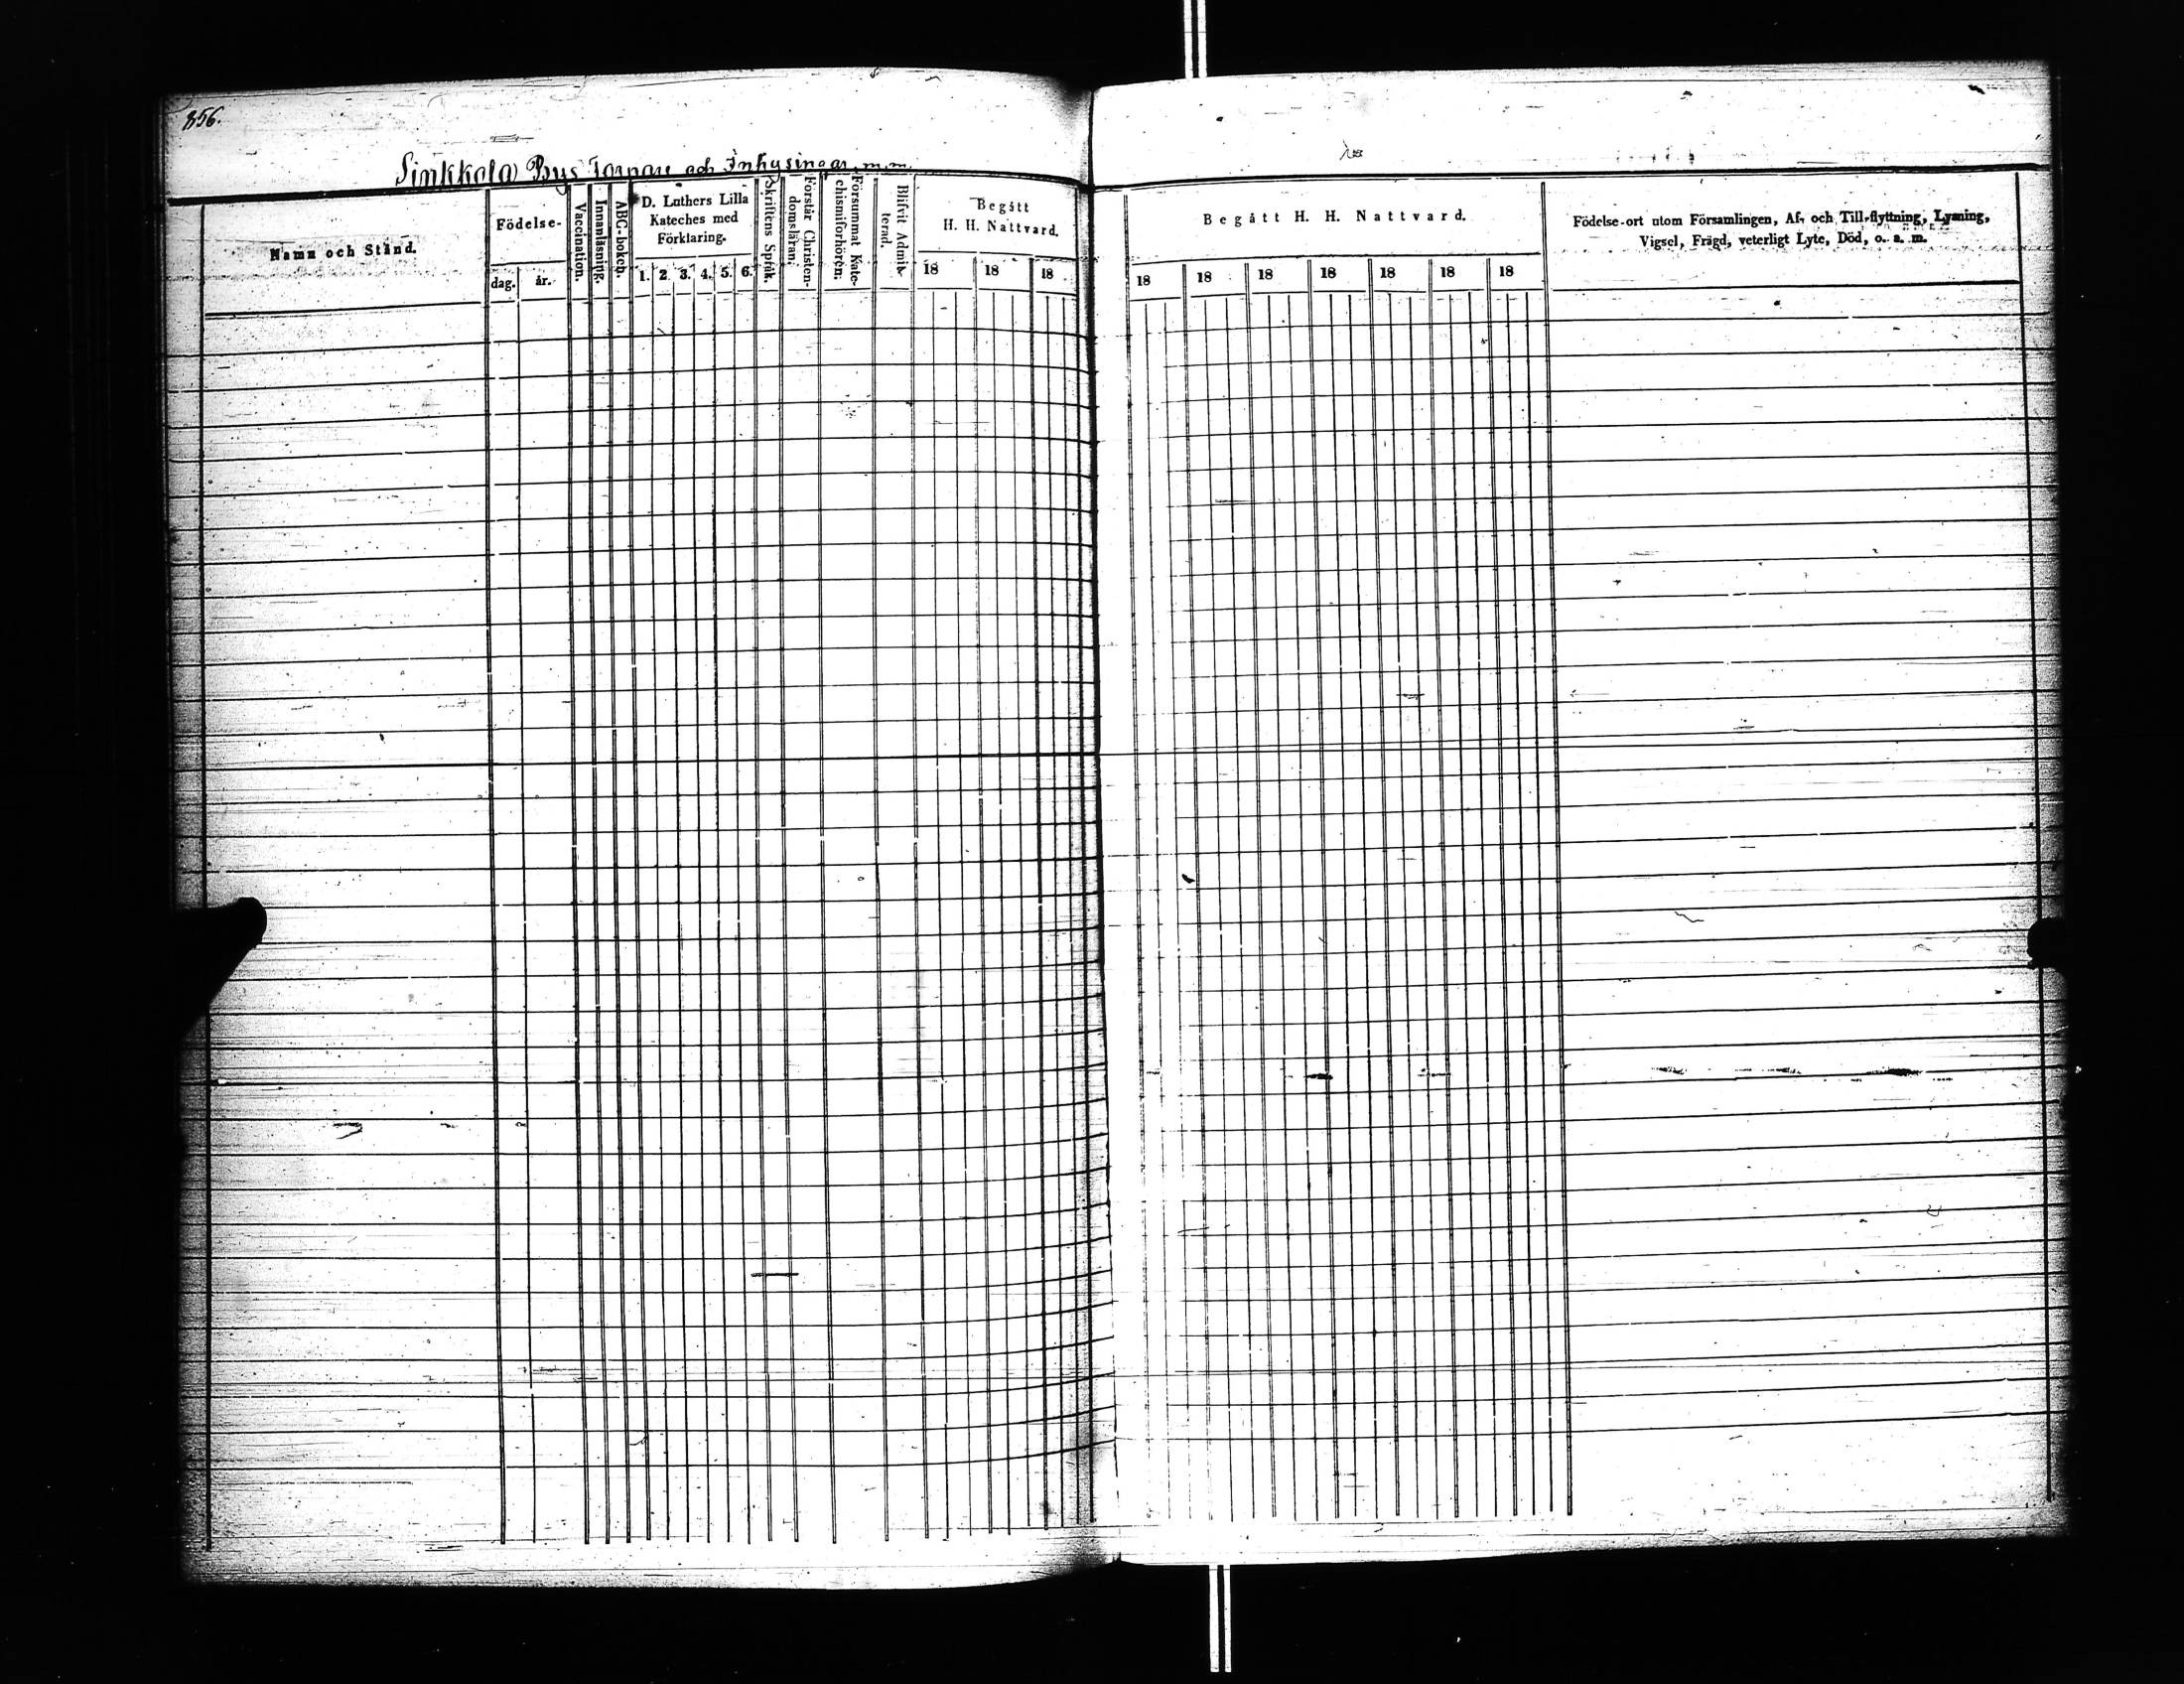 856.
Sinkkola Bys Torpare och Inhysingar m.m.
Namn och Stånd.
Födelse-
dag.
år.
Vaccination.
Innanläsning.
ABC-boken.
D. Luthers Lilla
Kateches med
Förklaring.
1. 2. 3. 4. 5. 6.
Skriftens Språk.
Förstår Christen-
domsläran.
Försummat Kate-
chismiförhören.
Blifvit Admit-
terad.
Begått
H. H. Nattvard.
18 18 18
Begått H. H. Nattvard.
18 18 18 18 18 18 18
Födelse-ort utom Församlingen, Af- och Till-flyttning, Lysning,
Vigsel, Frägd, veterligt Lyte, Död, o. s. m.